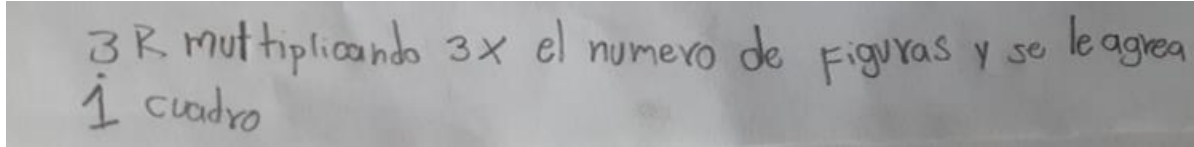 3 R multiplicando 3x el numero de Figuras y se le agrea
1 cuadro